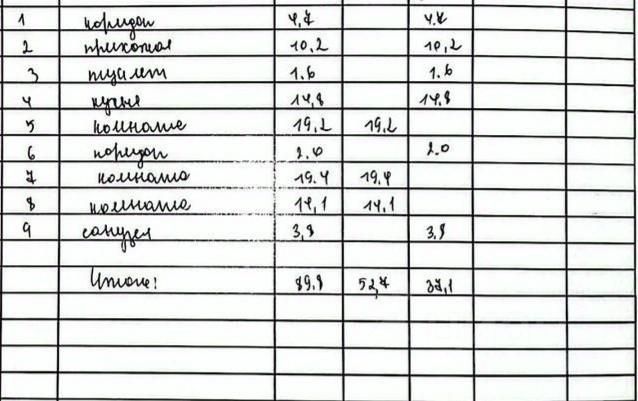 1 коридор 4,7 4.7
2 прихожая 10,2 10,2
3 туалет 1.6 1.6
4 кухня 14,8 14,8
5 комната 19,2 19,2
6 коридор 2.0 2.0
7 комната 19.4 19,4
8 комната 14,1 14,1
9 санузел 3,8 3,8
Итого: 89,8 52,7 37,1